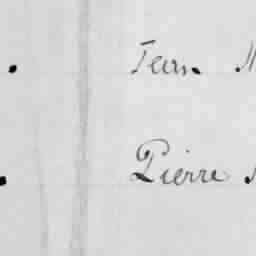 Jean M
Pierre